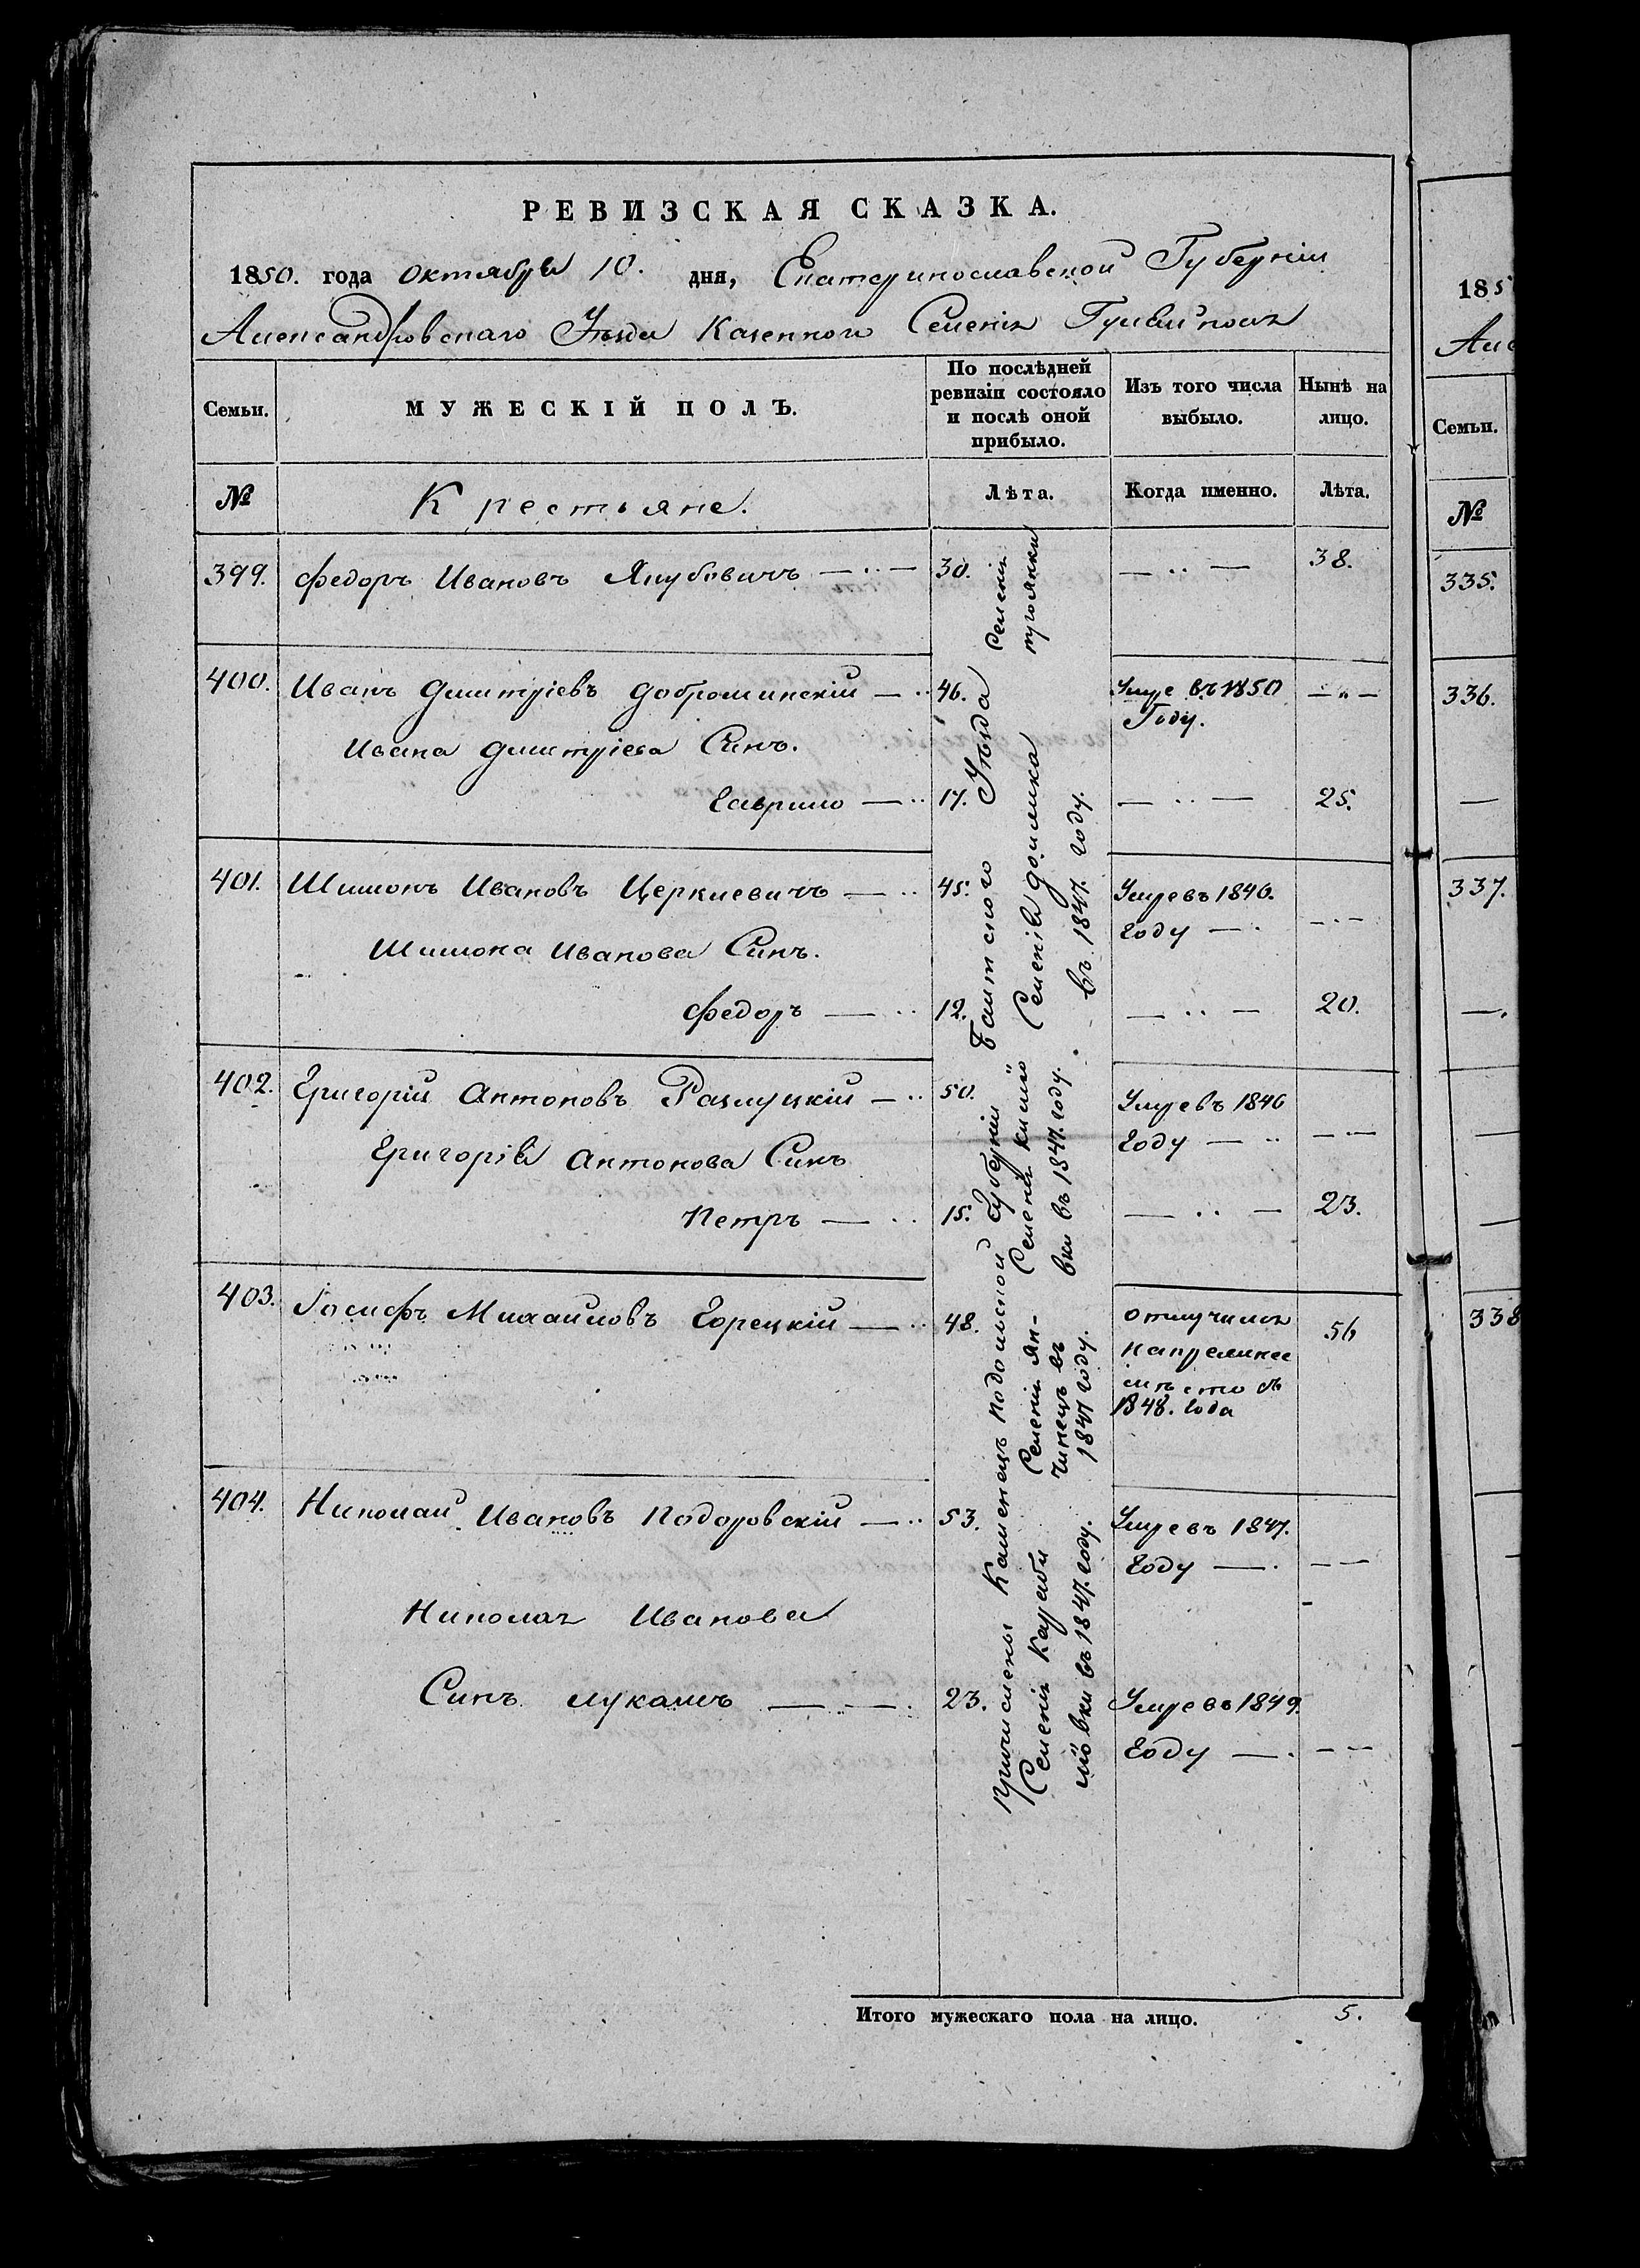 РЕВИЗСКАЯ СКАЗКА.
1850. года октября 10. дня, Екатеринославской Губерніи
Александровскаго Уѣзда Казенного Селенія Гуляйполя
Семьи.
МУЖЕСКІЙ ПОЛЪ.
По послѣдней ревизіи состояло и послѣ оной прибыло.
Изъ того числа выбыло.
Нынѣ на лицо.
№
Крестьяне.
Лѣта.
Когда именно.
Лѣта.
399. Федоръ Ивановъ Якубовичъ — .. — 30. — .. — 38.
400. Иванъ Дмитріевъ Доброминскій — .. 46. Умре въ 1850 Году. — „ —
Ивана Дмитріева Синъ.
Гаврило — .. 17. — .. — 25.
401. Шимонъ Ивановъ Церкиевичъ — .. 45. Умре въ 1846. году — . — . —
Шимона Иванова Синъ.
Федоръ — .. 12. — .. — 20.
402. Григорій Антоновъ Разлуцкій — .. 50. Умре въ 1846 году — .. — . —
Григорія Антонова Синъ
Петръ — .. 15. — .. — 23.
403. Іосифъ Михайловъ Горецкій — .. 48. отлучился напрежнее мѣсто съ 1848. года 56
404. Николай Ивановъ Подоровскій — .. 53. Умре въ 1847. году — . — —
Николая Иванова
Синъ Лукашъ — — . 23. Умре въ 1849. году — . — —
Причислены Каменецъ Подольской Губерніи Балтского Уѣзда Селенія
Селенія
въ 1847. году.
Селенія
вки въ 1847. году.
Селенія Ян-
чинецъ въ
1847 году.
Селенія Караби
лювки въ 1847. году.
Итого мужескаго пола на лицо. 5.
185
Але
Семьи.
№
335.
336.
337.
338